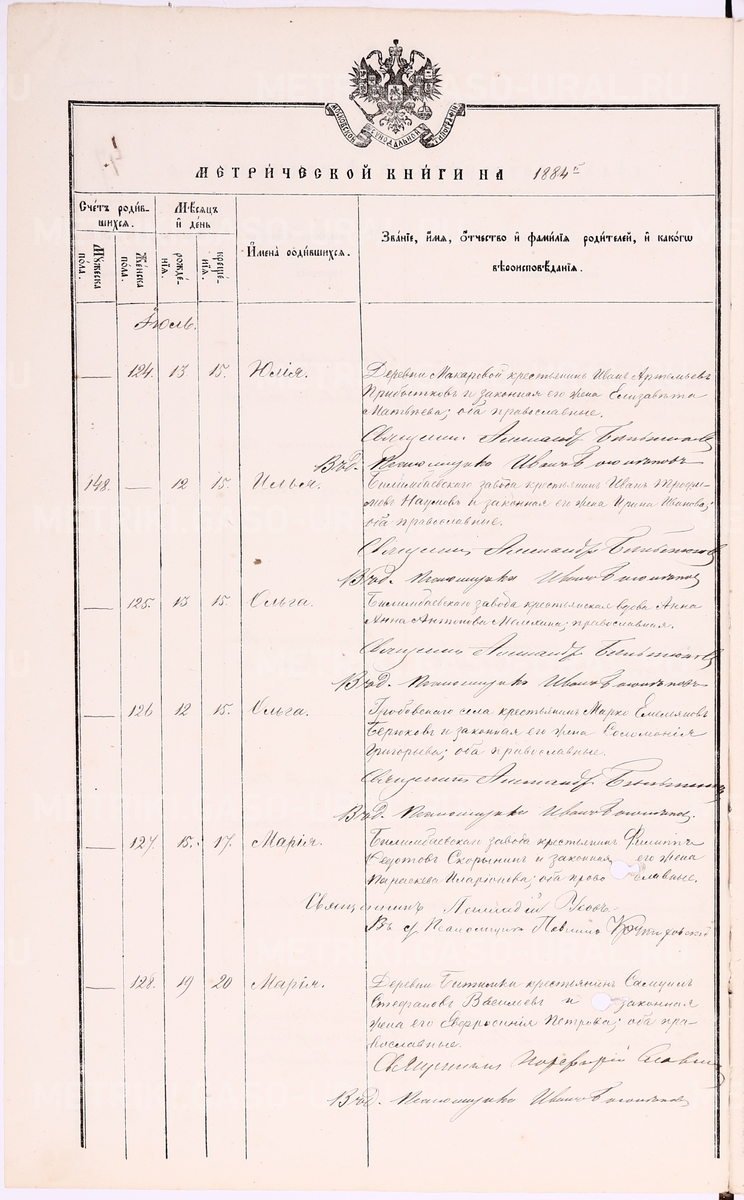 МОСКОВСКОЙ СѴНОДАЛЬНОЙ ТИПОГРАФІИ
МЕТРИЧЕСКОЙ КНИГИ НА 1884 г
Счетъ родив-
шихся.
Мѣсяцъ
и день
Имена родившихся.
Званіе, имя, отчество и фамилія родителей, и какогѡ
вѣроисповѣданія.
Мужеска
пола.
Женска
пола.
рожде-
нія.
креще-
нія.
Іюль.
— 124. 13 15. Юлія. Деревни Макаровой крестьянинъ Иванъ Артемьевъ
и законная его жена Елизавета
Матвѣева; оба православные.
Священникъ Александръ
Въ д. Псаломщика Иванъ
148. — 12 15. Илья. Билимбаевскаго завода крестьянинъ Иванъ
Наумовъ и законная его жена Ирина Иванова;
оба православные.
Священникъ Александръ
В. д. Псаломщика Иванъ
— 125. 13 15. Ольга. Билимбаевскаго завода крестьянская вдова Анна
Анна Антонова Мелехина; православная.
Священникъ Александръ
В. д. Псаломщика Иванъ
— 126 12 15. Ольга. Гробовскаго села крестьянинъ Марко Емельяновъ
Берюховъ и законная его жена Соломонія
Григорьева; оба православные.
Священникъ Александръ
В. д. Псаломщика Иванъ
— 127 15. 17. Марія. Билимбаевскаго завода крестьянинъ Филиппъ
Ѳедотовъ Скорынинъ и законная его жена
Параскева Иларіонова; оба православные.
Священникъ
Псаломщика
— 128. 19 20 Марія. Деревни Битимки крестьянинъ Самуилъ
Стефановъ Васильевъ и законная
жена его Евфросинія Петрова; оба пра-
вославные.
Священникъ Порфирій
В. д. Псаломщика Иванъ